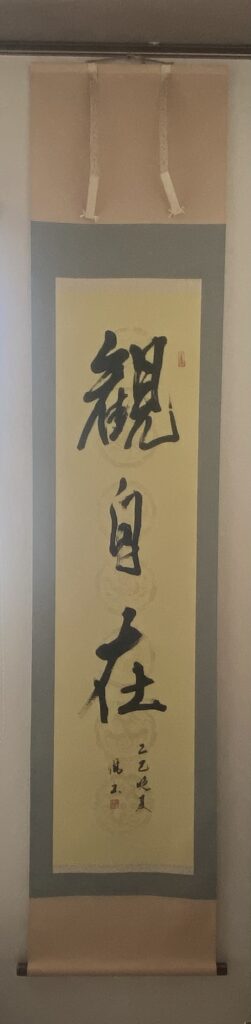 観自在
乙巳晩夏